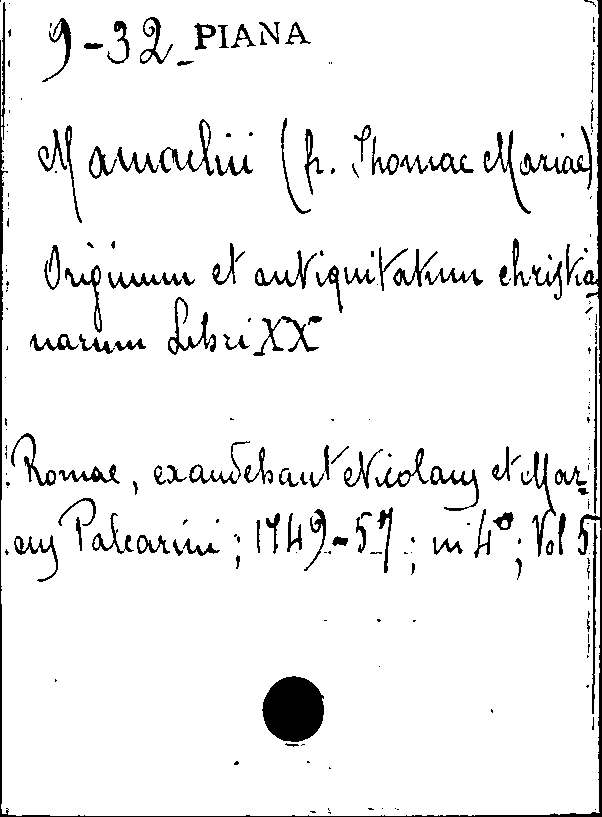 9-32_PIANA
Mamachii (fr. Thomae Mariae)
Originum et antiquitatum christia
narum Libri XX
Romae, exaudebant Nicolaus et Mar-
cus Palearini; 1749-57; in 4°; Vol 5